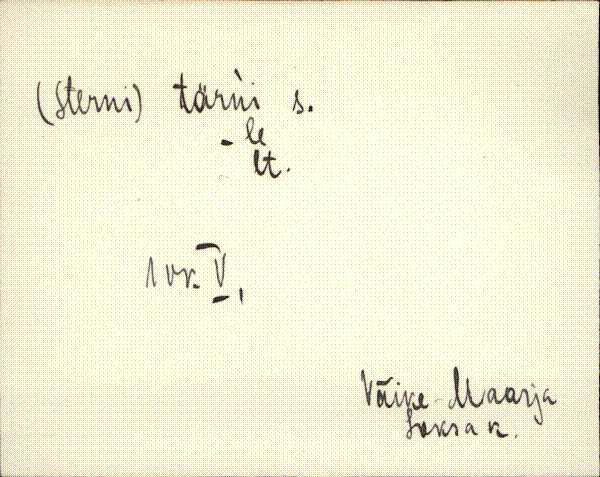 (Sterni) tärni s.
-le
lt.
1 vk. V,
Väike-Maarja